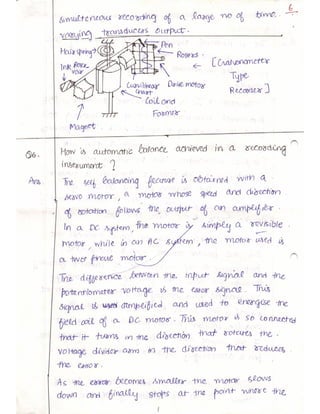 6
Simultaneous recording of a large no of time
varying transducers output.
Hair spring?
Pen
Ink
Rounds.
← [Galvanometer
Type
Recorder]
Curvilinear
Chart
Drive motor
Coil and
Former
Magnet
Q6. How is automatic balance achieved in a recording
instrument ?
Ans. The self balancing feature is obtained with a
servo motor, a motor whose speed and direction
of rotation follows the output of an amplifier.
In a DC system, the motor is simply a revisible
motor, while in an AC system, the motor used is
a two phase motor
The difference between the input signal and the
potentiometer voltage is the error signal. This
signal is amplified, and used to energise the
field coil of a DC motor. This motor is so connected
that it turns in the direction that rotates the
voltage divider arm in the direction that reduces
the error.
As the error becomes smaller the motor slows
down and finally stops at the point where the